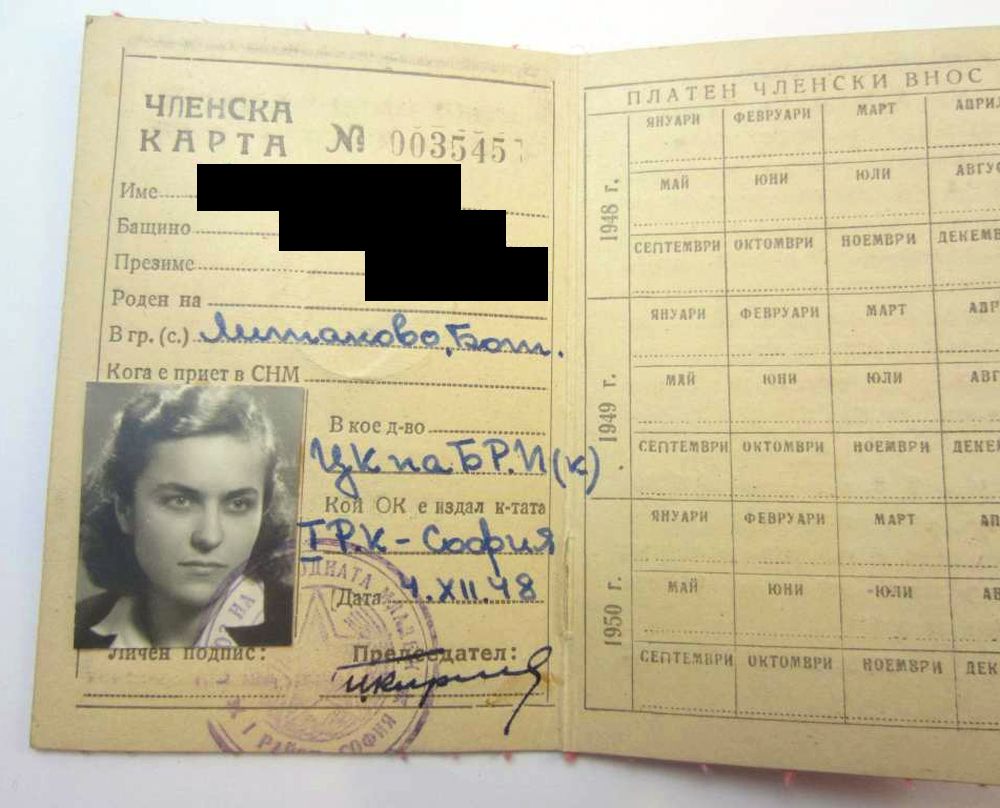 ЧЛЕНСКА
КАРТА № 0035457
Име
Бащино
Презиме
Роден на
В гр. (с.) Литаково, Бот.
Кога е приет в СНМ
В кое д-во
ЦК на БР.П(к)
Кой ОК е издал к-тата
ГР.К - София
Дата 4.XII.48
Личен подпис: Председател:
I РАЙОН СОФИЯ
ПЛАТЕН ЧЛЕНСКИ ВНОС
1948 г.
ЯНУАРИ ФЕВРУАРИ МАРТ АПРИЛ
МАЙ ЮНИ ЮЛИ АВГУС
СЕПТЕМВРИ ОКТОМВРИ НОЕМВРИ ДЕКЕМВ
1949 г.
ЯНУАРИ ФЕВРУАРИ МАРТ АПР
МАЙ ЮНИ ЮЛИ АВГ
СЕПТЕМВРИ ОКТОМВРИ НОЕМВРИ ДЕКЕ
1950 г.
ЯНУАРИ ФЕВРУАРИ МАРТ АП
МАЙ ЮНИ ЮЛИ АВ
СЕПТЕМВРИ ОКТОМВРИ НОЕМВРИ ДЕК